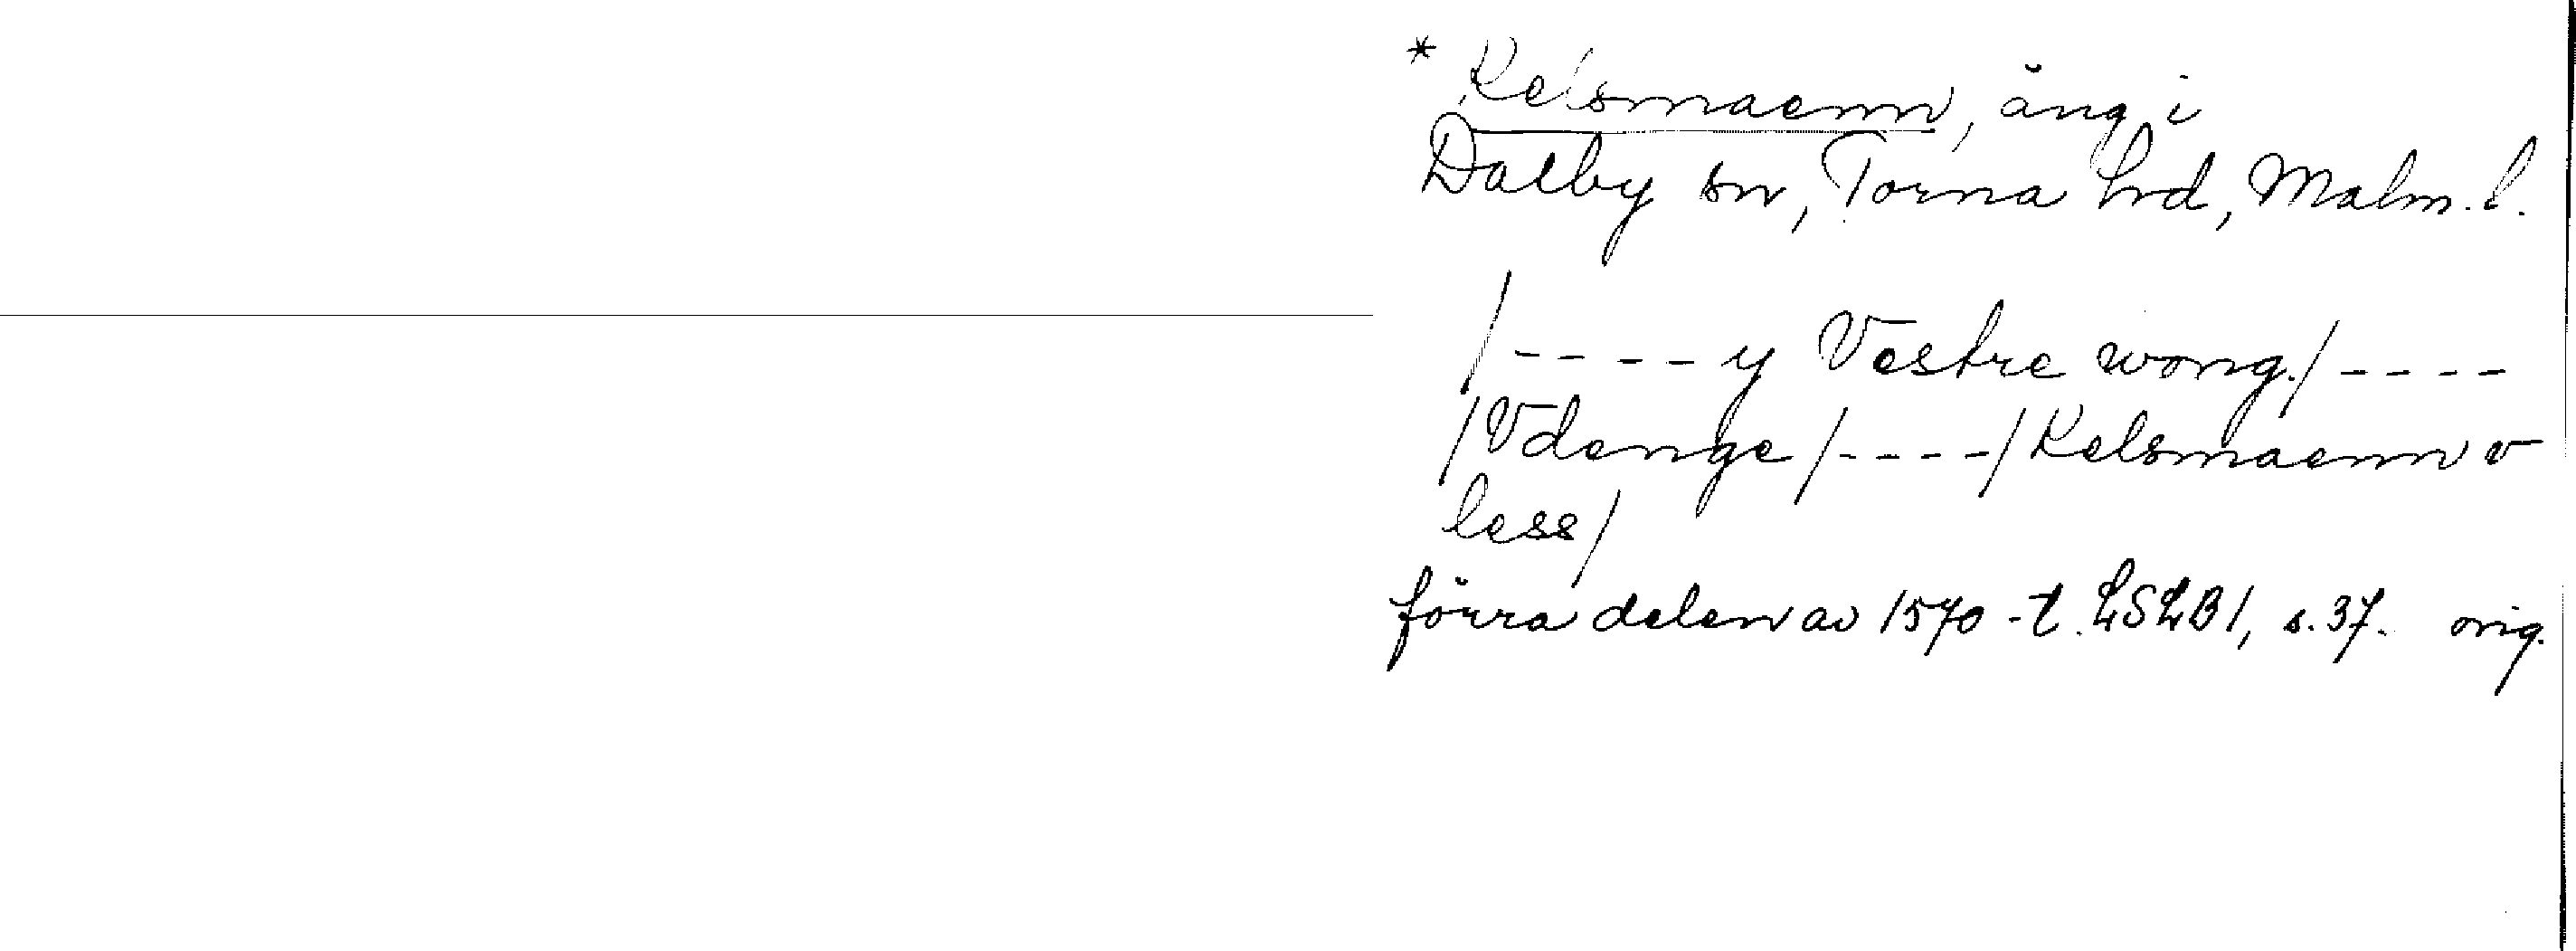 * Kelsmaenn, äng i
Dalby sn, Torna hd, Malm. l.
/---- y Vestre wong./----
/Vdenge/----/Kelsmaenn v
less/
förra delen av 1570-t. LSLB1, s. 37. orig.